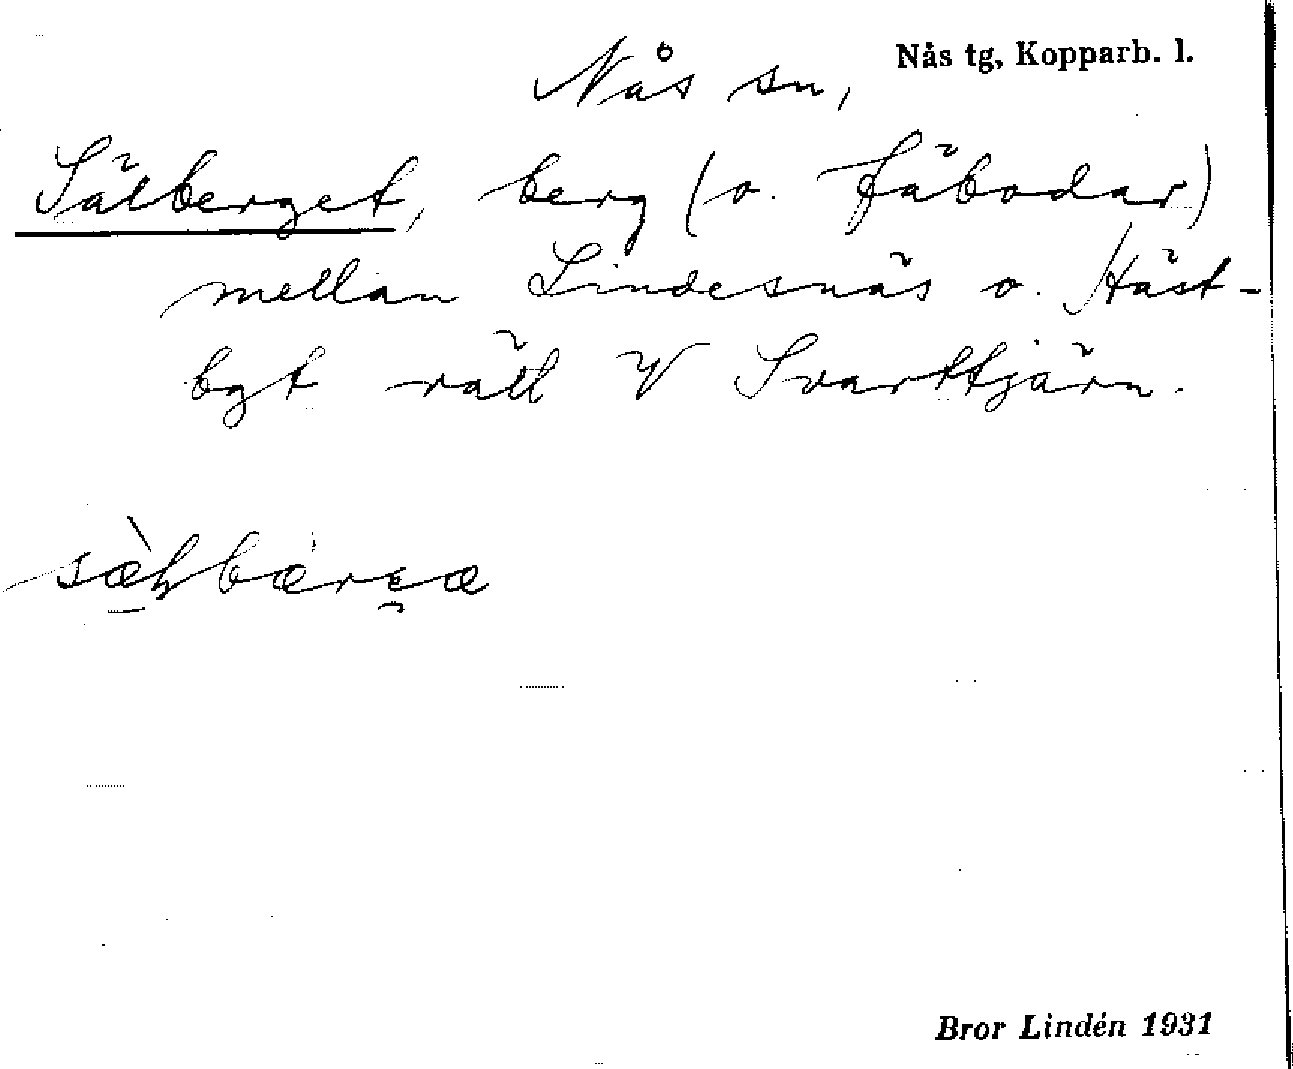 Nås tg, Kopparb. l.
Nås sn,
Sälberget, berg (o. fäbodar)
mellan Lindesnäs o. Häst-
bgt rätt V Svarttjärn.
Bror Lindén 1931